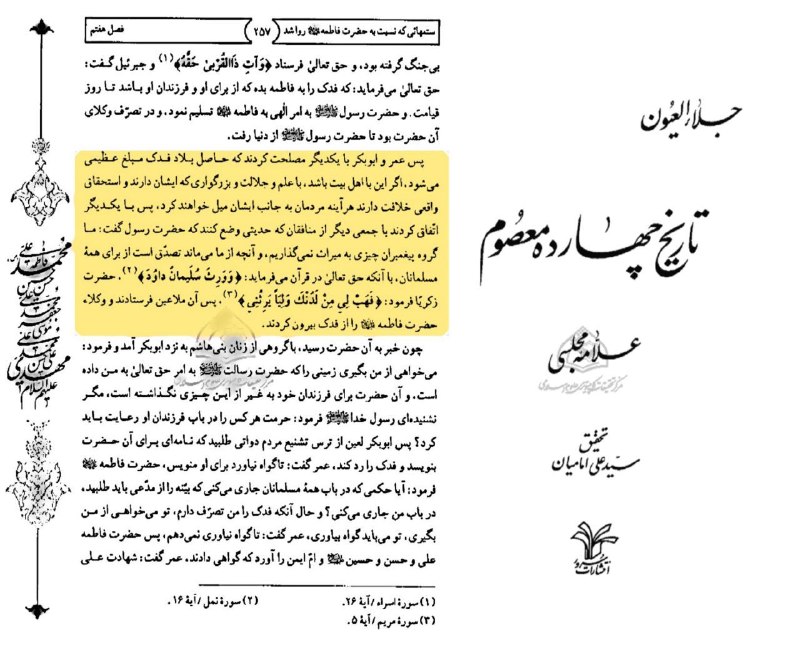 ستمهائی که نسبت به حضرت فاطمه ﷺ روا شد
۲۵۷
فصل هفتم
بی‌جنگ گرفته بود، و حق تعالیٰ فرستاد ﴿وَآتِ ذَاالْقُرْبیٰ حَقَّهُ﴾(۱) و جبرئیل گفت:
حق تعالیٰ می‌فرماید: که فدک را به فاطمه بده که از برای او و فرزندان او باشد تا روز
قیامت. و حضرت رسول ﷺ به امر الٰهی به فاطمه تسلیم نمود، و در تصرّف وکلای
آن حضرت بود تا حضرت رسول ﷺ از دنیا رفت.
پس عمر و ابوبکر با یکدیگر مصلحت کردند که حاصل بلاد فدک مبلغ عظیمی
می‌شود، اگر این با اهل بیت باشد، با علم و جلالت و بزرگواری که ایشان دارند و استحقاق
واقعی خلافت دارند هرآینه مردمان به جانب ایشان میل خواهند کرد، پس با یکدیگر
اتّفاق کردند با جمعی دیگر از منافقان که حدیثی وضع کنند که حضرت رسول گفت: ما
گروه پیغمبران چیزی به میراث نمی‌گذاریم، و آنچه از ما می‌ماند تصدّق است از برای همهٔ
مسلمانان، با آنکه حق تعالیٰ در قرآن می‌فرماید: ﴿وَوَرِثَ سُلَیمانُ داوُدَ﴾(۲)، حضرت
زکریّا فرمود: ﴿فَهَبْ لِی مِنْ لَدُنْكَ وَلِیّاً یَرِثُنِی﴾(۳)، پس آن ملاعین فرستادند و وکلاء
حضرت فاطمه را از فدک بیرون کردند.
چون خبر به آن حضرت رسید، با گروهی از زنان بنی‌هاشم به نزد ابوبکر آمد و فرمود:
می‌خواهی از من بگیری زمینی را که حضرت رسالت ﷺ به امر حق تعالیٰ به من داده
است. و آن حضرت برای فرزندان خود به غیر از این چیزی نگذاشته است، مگر
نشنیده‌ای رسول خدا ﷺ فرمود: حرمت هر کس را در باب فرزندان او رعایت باید
کرد؟ پس ابوبکر لعین از ترس تشنیع مردم دواتی طلبید که نامه‌ای برای آن حضرت
بنویسد و فدک را رد کند، عمر گفت: تا گواه نیاورد برای او منویس، حضرت فاطمه
فرمود: آیا حکمی که در باب همهٔ مسلمانان جاری می‌کنی که بیّنه را از مدّعی باید طلبید،
در باب من جاری می‌کنی؟ و حال آنکه فدک را من تصرّف دارم، تو می‌خواهی از من
بگیری، تو می‌باید گواه بیاوری، عمر گفت: تا گواه نیاوری نمی‌دهم، پس حضرت فاطمه
علی و حسن و حسین و امّ ایمن را آورد که گواهی دادند. عمر گفت: شهادت علی
(۱) سورهٔ اسراء / آیهٔ ۲۶.
(۲) سورهٔ نمل / آیهٔ ۱۶.
(۳) سورهٔ مریم / آیهٔ ۵.
جلاء العیون
تاریخ چهارده معصوم
علامه مجلسی
تحقیق
سید علی امامیان
انتشارات سرور